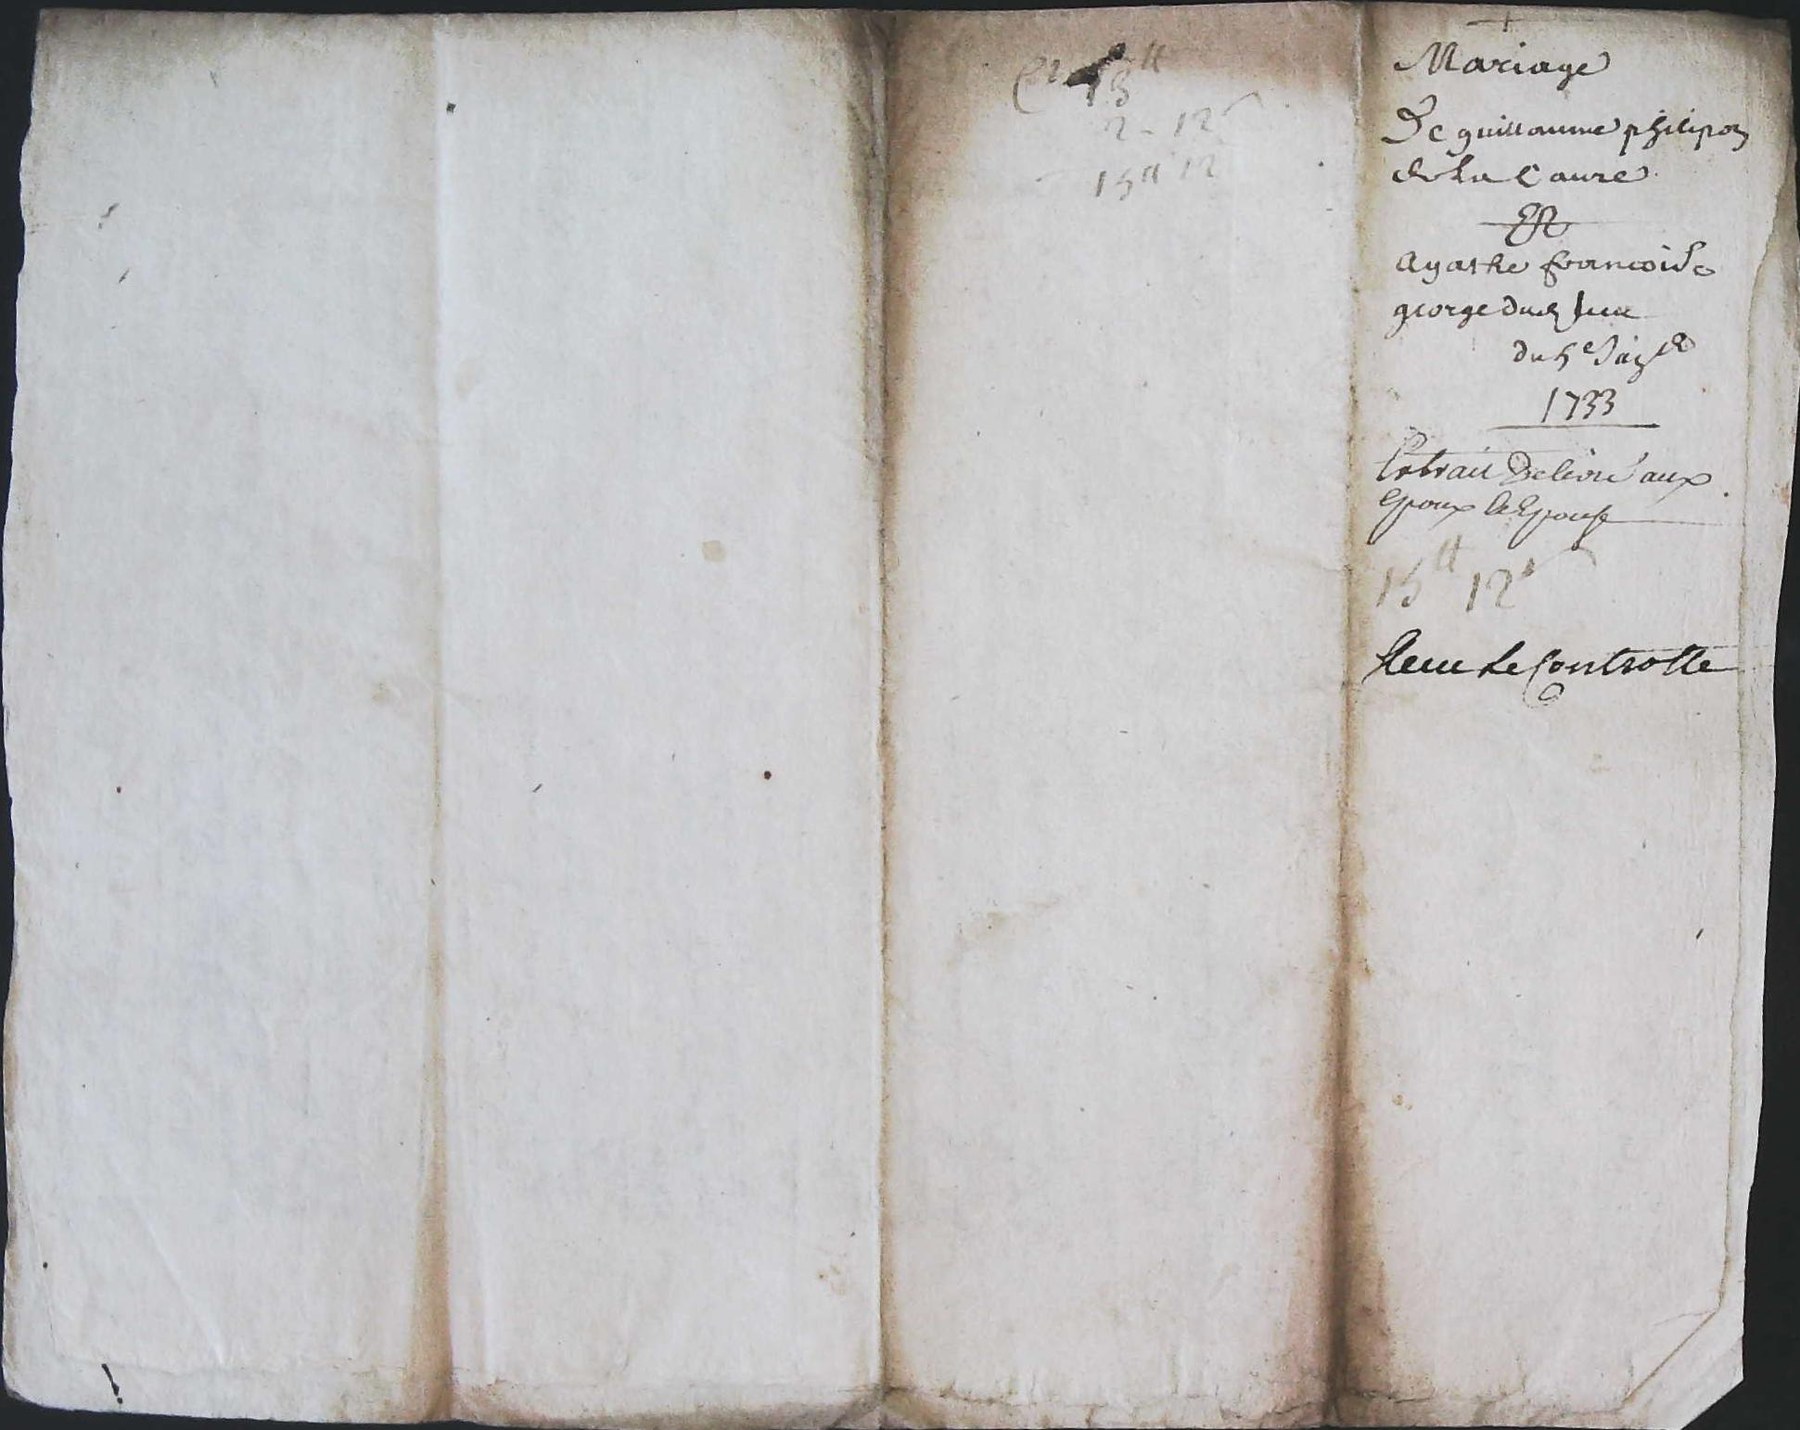 15 ₶
2 - 12
15 ₶ 12
Mariage
De guillaume philipon
de la Caure
Et
agathe francoise
george du
du 5e
1733
Extrait Delivré aux
Epoux & Epouse
15 ₶ 12 s
Le Controlle